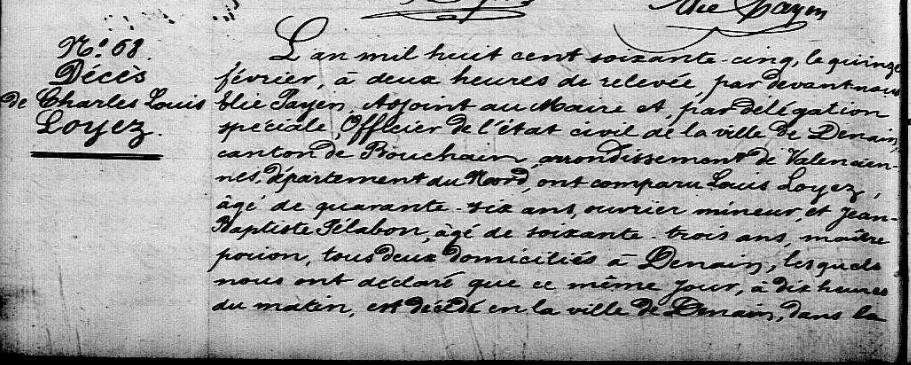 Elie Payen
N.° 68.
Décès
de Charles Louis
Loyez.
L'an mil huit cent soixante-cinq, le quinze
février, à deux heures de relevée, par devant nous
Elie Payen, Adjoint au Maire et, par délégation
spéciale, Officier de l'état civil de la ville de Denain,
canton de Bouchain, arrondissement de Valencien-
nes, département du Nord, ont comparu Louis Loyez,
âgé de quarante-six ans, ouvrier mineur, et Jean-
Baptiste Télabon, âgé de soixante-trois ans, maître
porion, tous deux domiciliés à Denain, lesquels
nous ont déclaré que ce même jour, à dix heures
du matin, est décédé en la ville de Denain, dans la